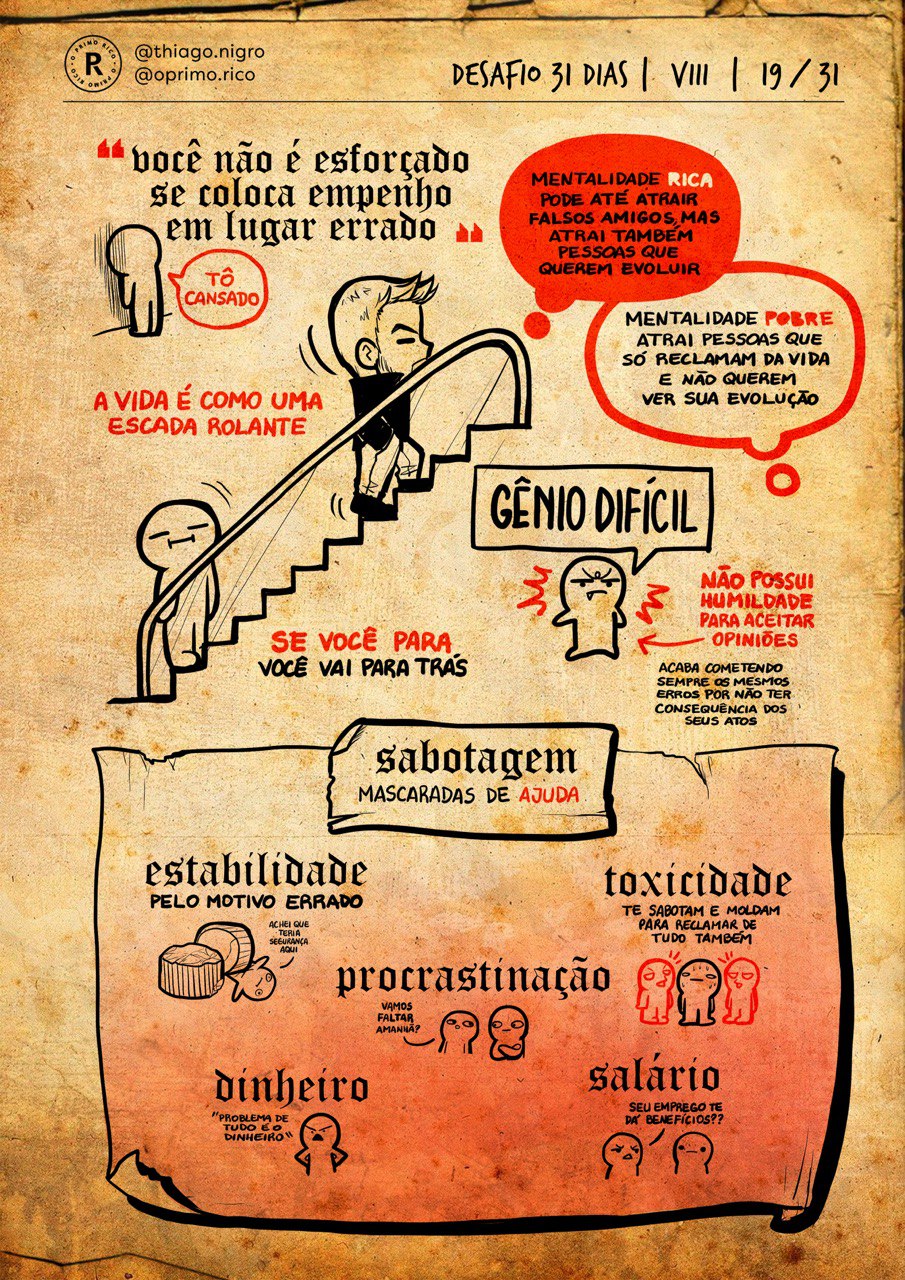 O PRIMO RICO • O PRIMO RICO •
R
@thiago.nigro
@oprimo.rico
DESAFIO 31 DIAS | VIII | 19 / 31
“ você não é esforçado
se coloca empenho
em lugar errado ”
TÔ
CANSADO
MENTALIDADE RICA
PODE ATÉ ATRAIR
FALSOS AMIGOS, MAS
ATRAI TAMBÉM
PESSOAS QUE
QUEREM EVOLUIR
MENTALIDADE POBRE
ATRAI PESSOAS QUE
SÓ RECLAMAM DA VIDA
E NÃO QUEREM
VER SUA EVOLUÇÃO
A VIDA É COMO UMA
ESCADA ROLANTE
SE VOCÊ PARA
VOCÊ VAI PARA TRÁS
GÊNIO DIFÍCIL
NÃO POSSUI
HUMILDADE
PARA ACEITAR
OPINIÕES
ACABA COMETENDO
SEMPRE OS MESMOS
ERROS POR NÃO TER
CONSEQUÊNCIA DOS
SEUS ATOS
sabotagem
MASCARADAS DE AJUDA
estabilidade
PELO MOTIVO ERRADO
ACHEI QUE
TERIA
SEGURANÇA
AQUI
toxicidade
TE SABOTAM E MOLDAM
PARA RECLAMAR DE
TUDO TAMBÉM
procrastinação
VAMOS
FALTAR
AMANHÃ?
dinheiro
"PROBLEMA DE
TUDO É O
DINHEIRO"
salário
SEU EMPREGO TE
DÁ BENEFÍCIOS??